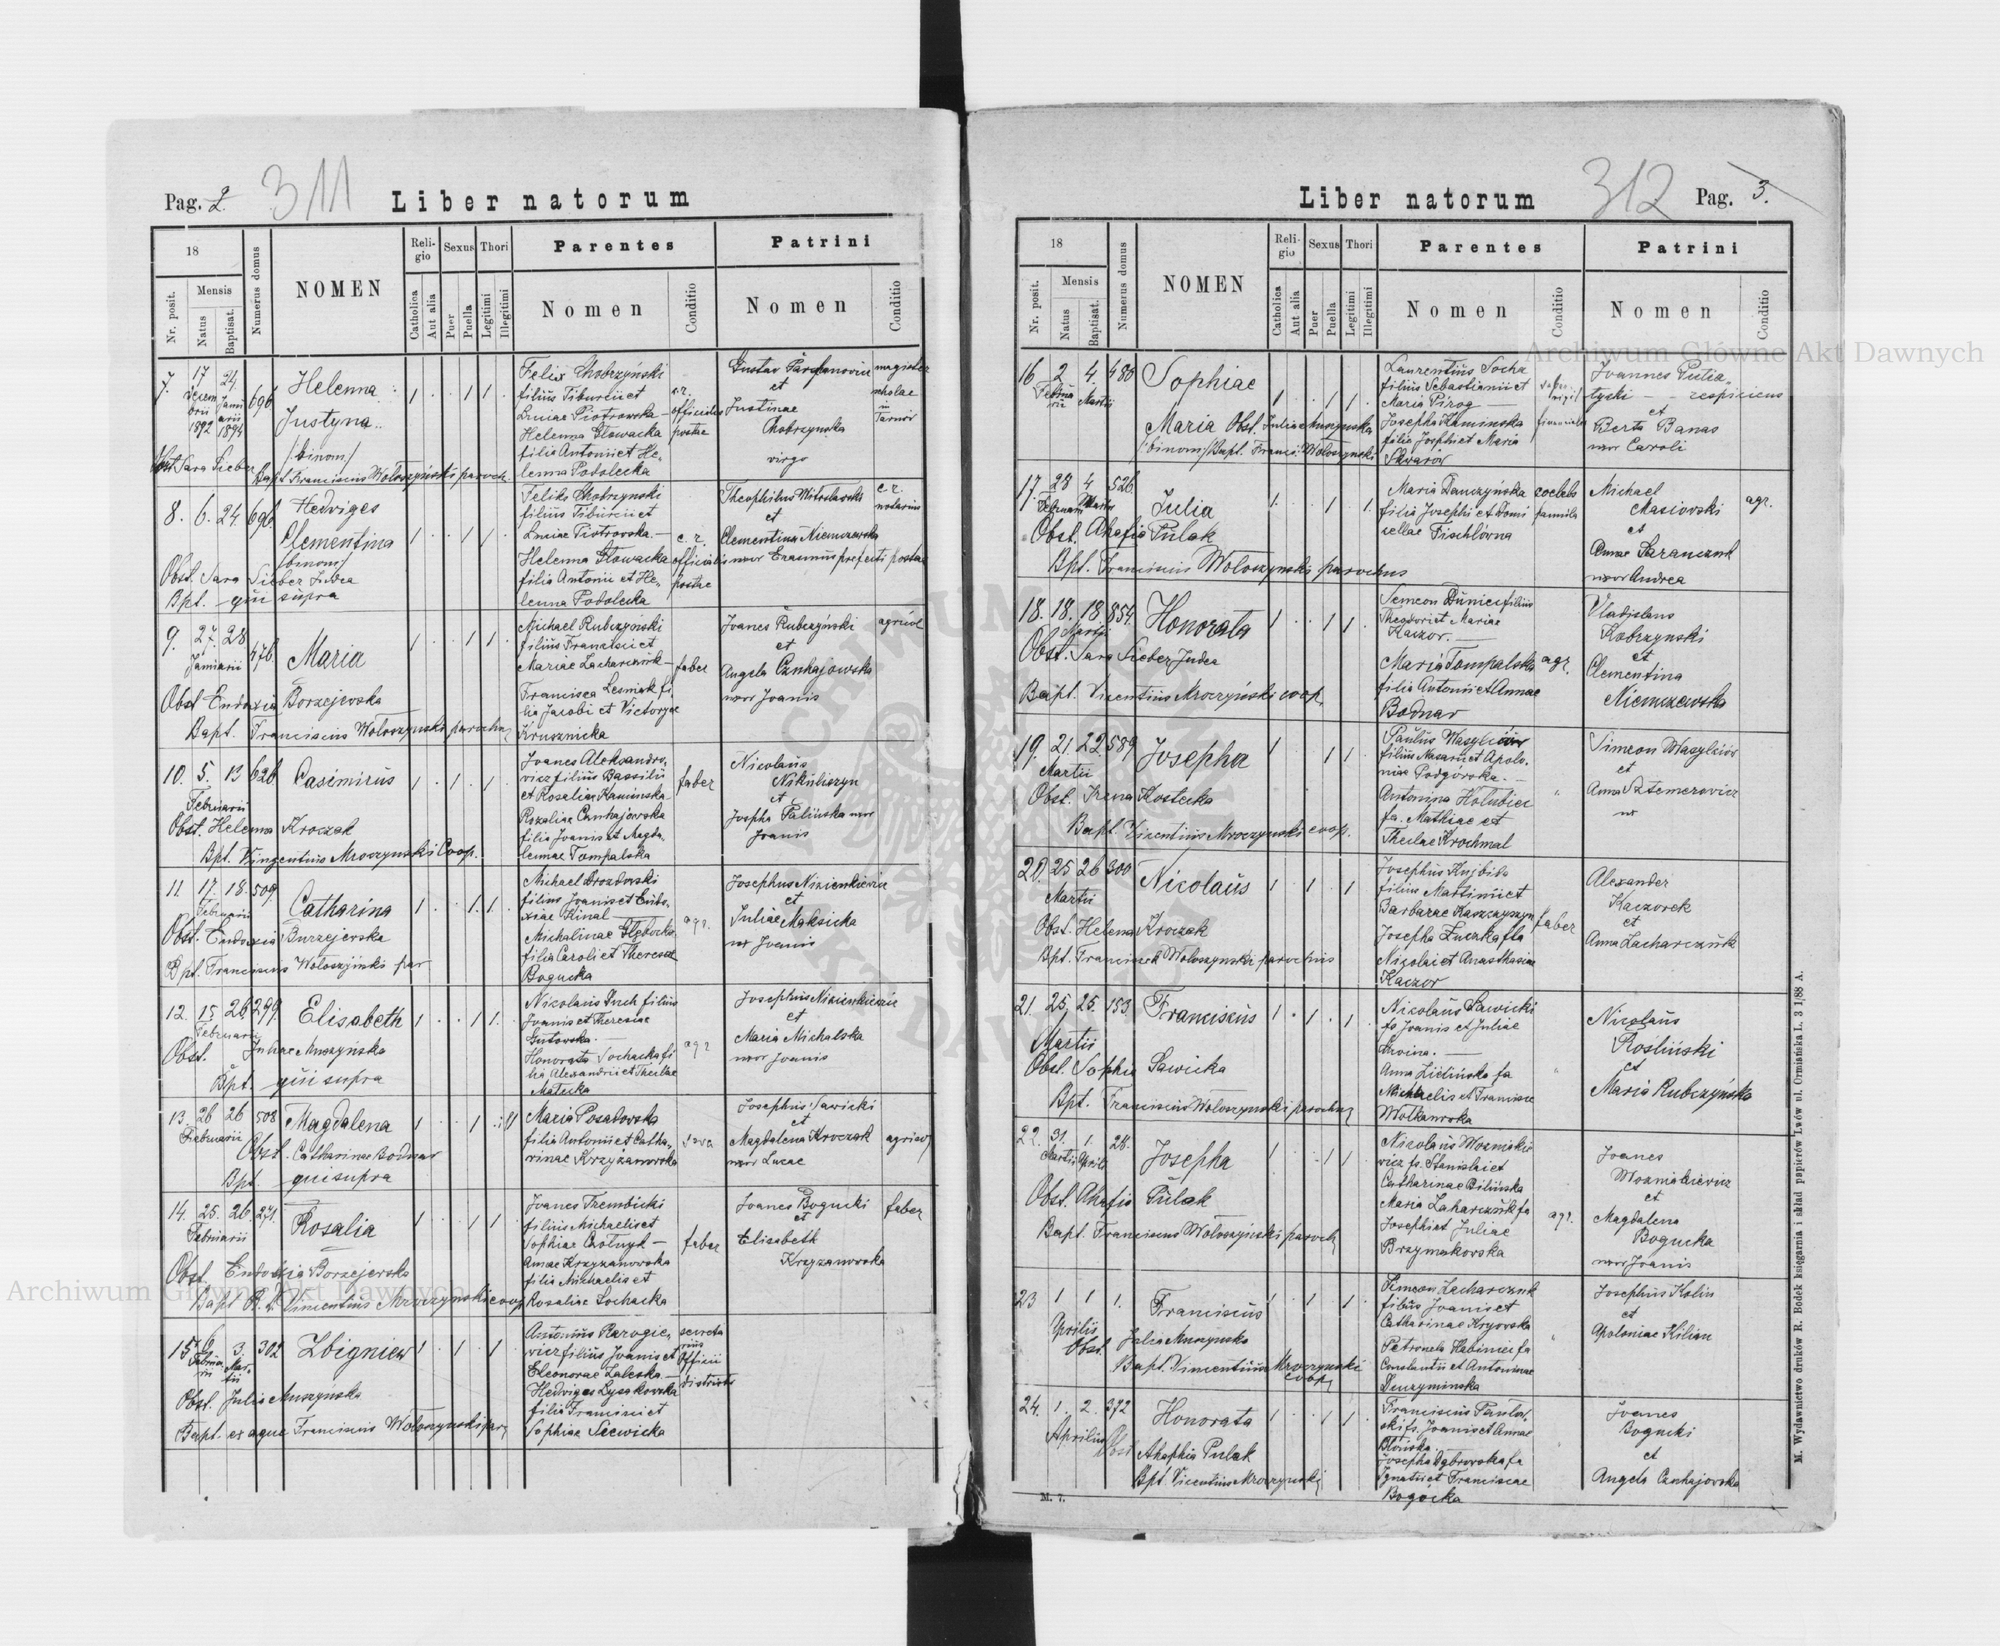 Pag. 2. 311 Liber natorum
18
Mensis
Nr. posit.
Natus
Baptisat.
Numerus domus
NOMEN
Religio
Catholica
Aut alia
Sexus
Puer
Puella
Thori
Legitimi
Illegitimi
Parentes
Nomen
Conditio
Patrini
Nomen
Conditio
7. 17 24. 696 Helenna
1892 1894 Justyna
/:binom/
Obst Sara Sieber
Bapt. Franciscus Wołoszyński paroch.
Felix Chobrzyński
filius Tiburcii et
Luciae Piotrowska —
Helenna Głowacka
filia Antonii et He-
lenna Podolecka
c.r.
officialis
postae
et
Justinae
Chobrzynska
virgo
magister
scholae
in
Tarnów
8. 6. 24. 696 Hedviges
Clementina
/binom/
Obst. Sara Sieber Judea
Bpt. qui supra
Feliks Chobrzynski
filius Tiburcii et
Luciae Piotrowska. —
Helenna Głowacka
filia Antonii et He-
lenna Podolecka
c. r.
officialis
postae
et
Clementina Niemczewska
uxor Erasmus prefecti postae
c. r.
notarius
9. 27. 28 476. Maria
Januarii
Obst Eudoxia Borzejewska
Bapt. Franciscus Wołoszynski parochus
Michael Rubczynski
filius Francisci et
Mariae Zacharczuk —
Francisca Lesniak fi-
lia Jacobi et Victoryae
Krusznicka
faber
Joanes Rubczyński
et
Angela Czuhajowska
uxor Joanis
agricol
10. 5. 13 626. Casimirus
Februarii
Obst. Helena Kroczak
Bpt. Vinzentius Mroczynski Coop.
Joanes Aleksandro-
vicz filius Bassilii
et Rosaliae Kaminska.
Rozaliae Czuhajewska
filia Joanis et Magda
lennae Tompalska
faber
Nicolaus
Nikuliszyn
et
Josepha Palinska uxor
Joanis
11. 17. 18. 509. Catharina
Februarii
Obst. Eudoxia Burzejewska
Bpt. Franciscus Wołoszyński par
Michael Drozdowski
filius Joanis et Eudo-
xiae Kinal —
Michalinae Głębocka
filia Caroli et Theresae
Bogucka
agr.
Josephus Nizienkiewicz
et
Juliae Maksicka
ux Joanis
12. 15 26. 299. Elisabeth
Februarii
Obst. Juliae Muszyńska
Bpt. qui supra
Nicolaus Duch filius
Joanis et Theresiae
Gutowska. —
Honorata Sochacka fi
lia Alexandrii et Theclae
Małecka
agr
Josephus Nizienkiewicz
et
Maria Michalska
uxor Joanis
13. 26 26 508 Magdalena
Februarii
Obst. Catharinae Bodnar
Bpt. qui supra
Maria Posadowska
filia Antonii et Catha-
rinae Krzyżanowska
Josephus Sawicki
et
Magdalena Kroczak
uxor Lucae
14. 25. 26. 271. Rosalia
Februarii
Obst. Eudoxia Borzejewska
Bapt R. d. Vincentius Mroczynski coop
Joanes Trembicki
filius Michaelis et
Sophiae Czolnyk —
Annae Krzyzanowska
filia Michaelis et
Rosaliae Sochacka
faber
Joanes Bogucki
et
Elisabeth
Krzyzanowska
faber
15. 6. 3. 302 Zbigniew
Obst. Julia Muszynska
Bapt. ex aqua Franciscus Wołoszynski par
Antonius Rozogie-
wicz filius Joanis et
Eleonorae Zaleska. —
Hedviges Łysakowska
filia Francisci et
Sophiae Siewicka
secreta
rius
Officii
districts
Liber natorum 312 Pag. 3.
18
Mensis
Nr. posit.
Natus
Baptisat.
Numerus domus
NOMEN
Religio
Catholica
Aut alia
Sexus
Puer
Puella
Thori
Legitimi
Illegitimi
Parentes
Nomen
Conditio
Patrini
Nomen
Conditio
16 2 4. 480 Sophiae
Martii
Maria Obst. Juliae Muszynska
/:binom/ Bapt. Franci: Wołoszynski
Laurentius Socha
filius Sebastianii et
Maria Pirog —
Josepha Kaminska
filia Josephi et Maria
Skwarów
Joannes Putia-
tycki — respiciens
et
Berta Banas
uxor Caroli
17. 28 4 526. Julia
Obst. Ahafia Pulak
Bpt. Franciscus Wołoszynski parochus
Maria Danczyńska
filia Josephi et Domi
cellae Fischlówna
coelebs
famula
Michael
Masiovski
et
Annae Saranczuk
uxor Andrea
agr.
18. 18. 18. 854. Honorata
Martii
Obst. Sara Sieber Judea
Bapt. Vicentius Mroczyński coop.
Semeon Duniec filius
Theodori et Mariae
Kaczor. —
Maria Tompalska
filia Antonii et Annae
Bodnar
agr.
Vladislaus
Kobrzynski
et
Clementina
Niemczewska
19. 21. 22. 589 Josepha
Martii
Obst. Irena Kostecka
Bapt. Vicentius Mroczynski coop.
Paulus Wasylciów
filius Nazarii et Apolo-
niae Podgórska. —
Antonina Hołubiec
fa. Mathiae et
Theclae Krochmal
Simeon Wasylciów
et
Anna Sztemerowicz
ux
20. 25 26 300 Nicolaus
Martii
Obst. Helena Kroczak
Bpt. Franciscek Wołoszynski parochus
Josephus Kujbida
filius Maksimii et
Barbarae Kaszczyszyn
Josepha Łuczka fla
Nicolai et Anasthasiae
Kaczor
faber
Alexander
Kaczorek
et
Anna Zacharczuk
21. 25. 25. 153. Franciscus
Martii
Obst. Sophia Sawicka
Bpt. Franciscus Wołoszynski parochus
Nicolaus Sawicki
fs Joanis et Juliae
Anna Zielińska fa
Michaelis et Francisce
Wołkowska
Nicolaus
Rosliński
et
Maria Rubczyńska
22. 31. 1. 28. Josepha
Martii Aprili
Obst. Ahafia Pulak
Bapt. Franciscus Wołoszyński paroch
Nicolaus Wozniakie
wicz fs. Stanislai et
Catharinae Bilińska
Maria Zaharczuk fa
Josephi et Juliae
Brzymakowska
agr.
Joanes
Wozniakiewicz
et
Magdalena
Bogucka
uxor Joanis
23 1 1 1. Franciscus
Aprilis
Obst. Julia Muszynska
Bapt. Vincentius Mroczynski
coop
Simeon Zacharczuk
filius Joanis et
Catharinae Krysowska
Petronela Habiniec fa
Constantii et Antoninae
Duczyminska
Josephus Kolin
et
Apoloniae Kilian
24. 1. 2. 372 Honorata
Aprilis Obst
Ahaphia Pulak
Bpt. Vicentius Mroczynski
Franciscus Pawlow-
ski fs. Joanis et Annae
Błońska.
Josepha Dąbrowska fa
Ignatii et Franciscae
Bogócka
Joanes
Bogucki
et
Angela Czuhajowska
M. 7.
M. Wydawnictwo druków R. Bodek księgarnia i skład papierów Lwów ul. Ormiańska L. 3 1/88 A.
Archiwum Główne Akt Dawnych
Archiwum Główne Akt Dawnych